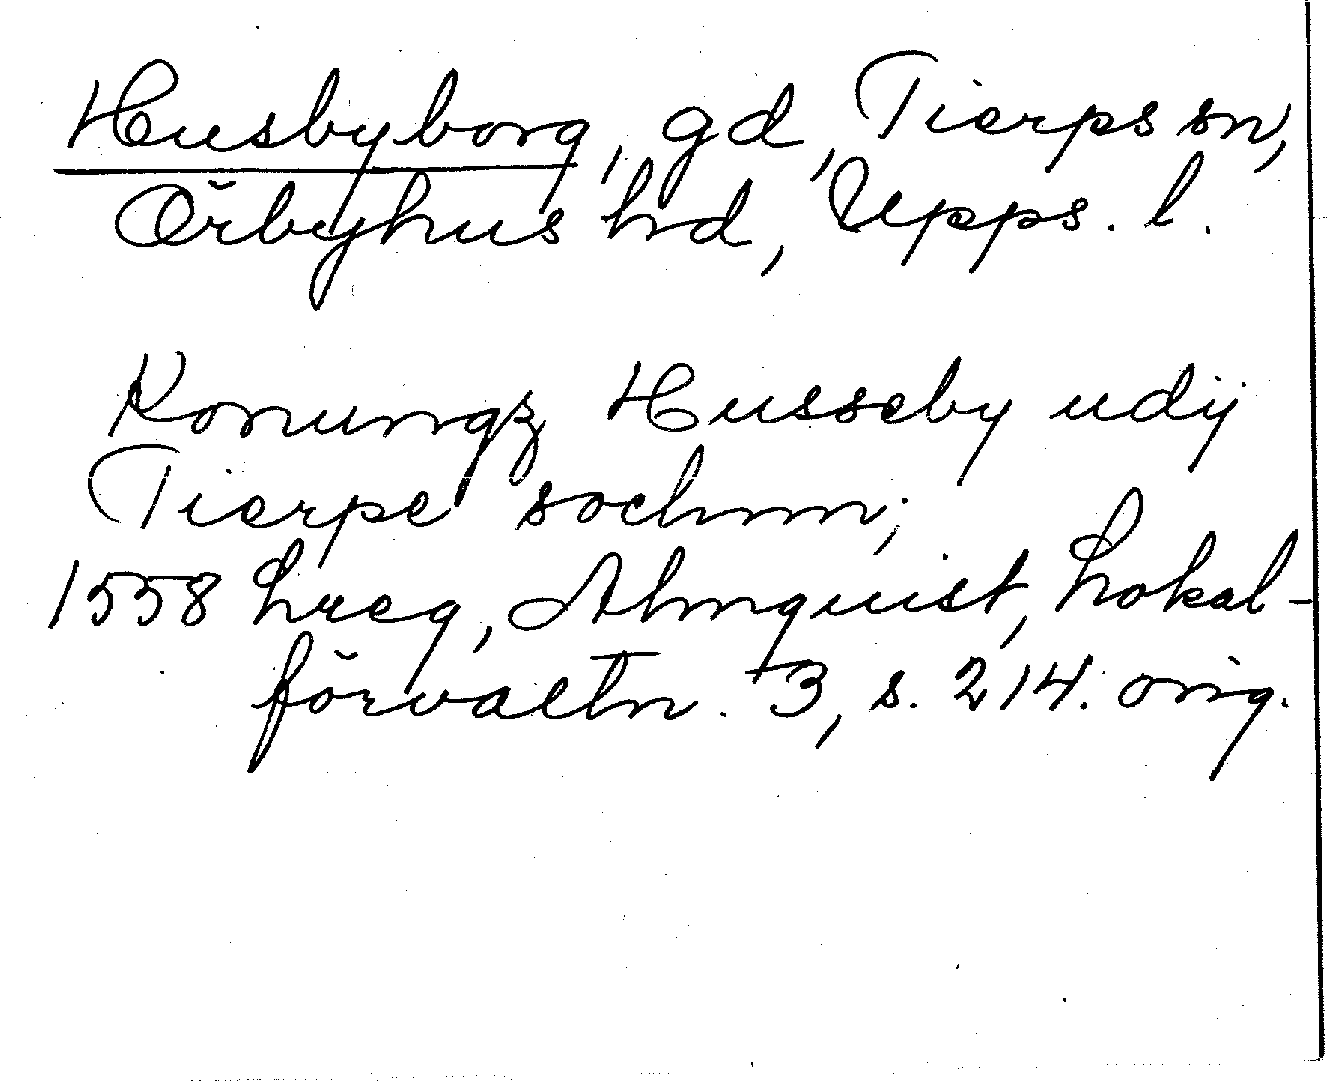 Husbyborg, gd, Tierps sn,
Örbyhus hd, Upps. l.
Konungz Husseby udij
Tierpe sochnn;
1558 Lreg, Almquist, Lokal-
förvaltn. 3, s. 214. orig.